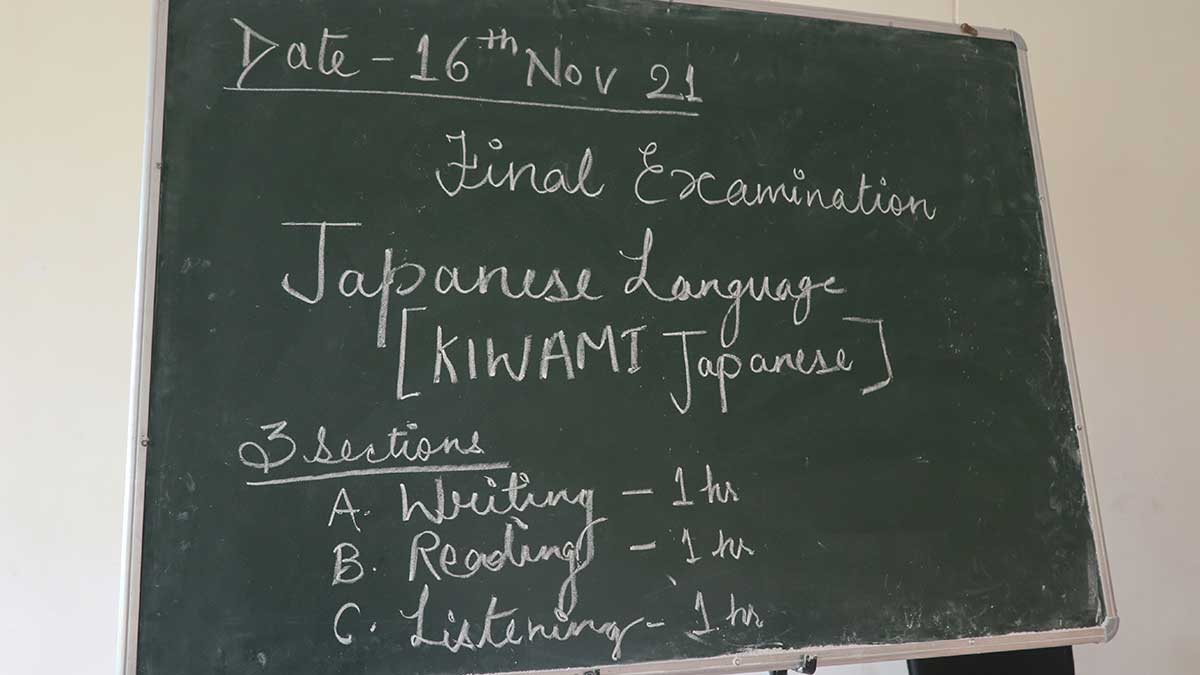 Date - 16th Nov 21
Final Examination
Japanese Language
[KIWAMI Japanese]
3 sections
A. Writing - 1 hr
B. Reading - 1 hr
C. Listening - 1 hr